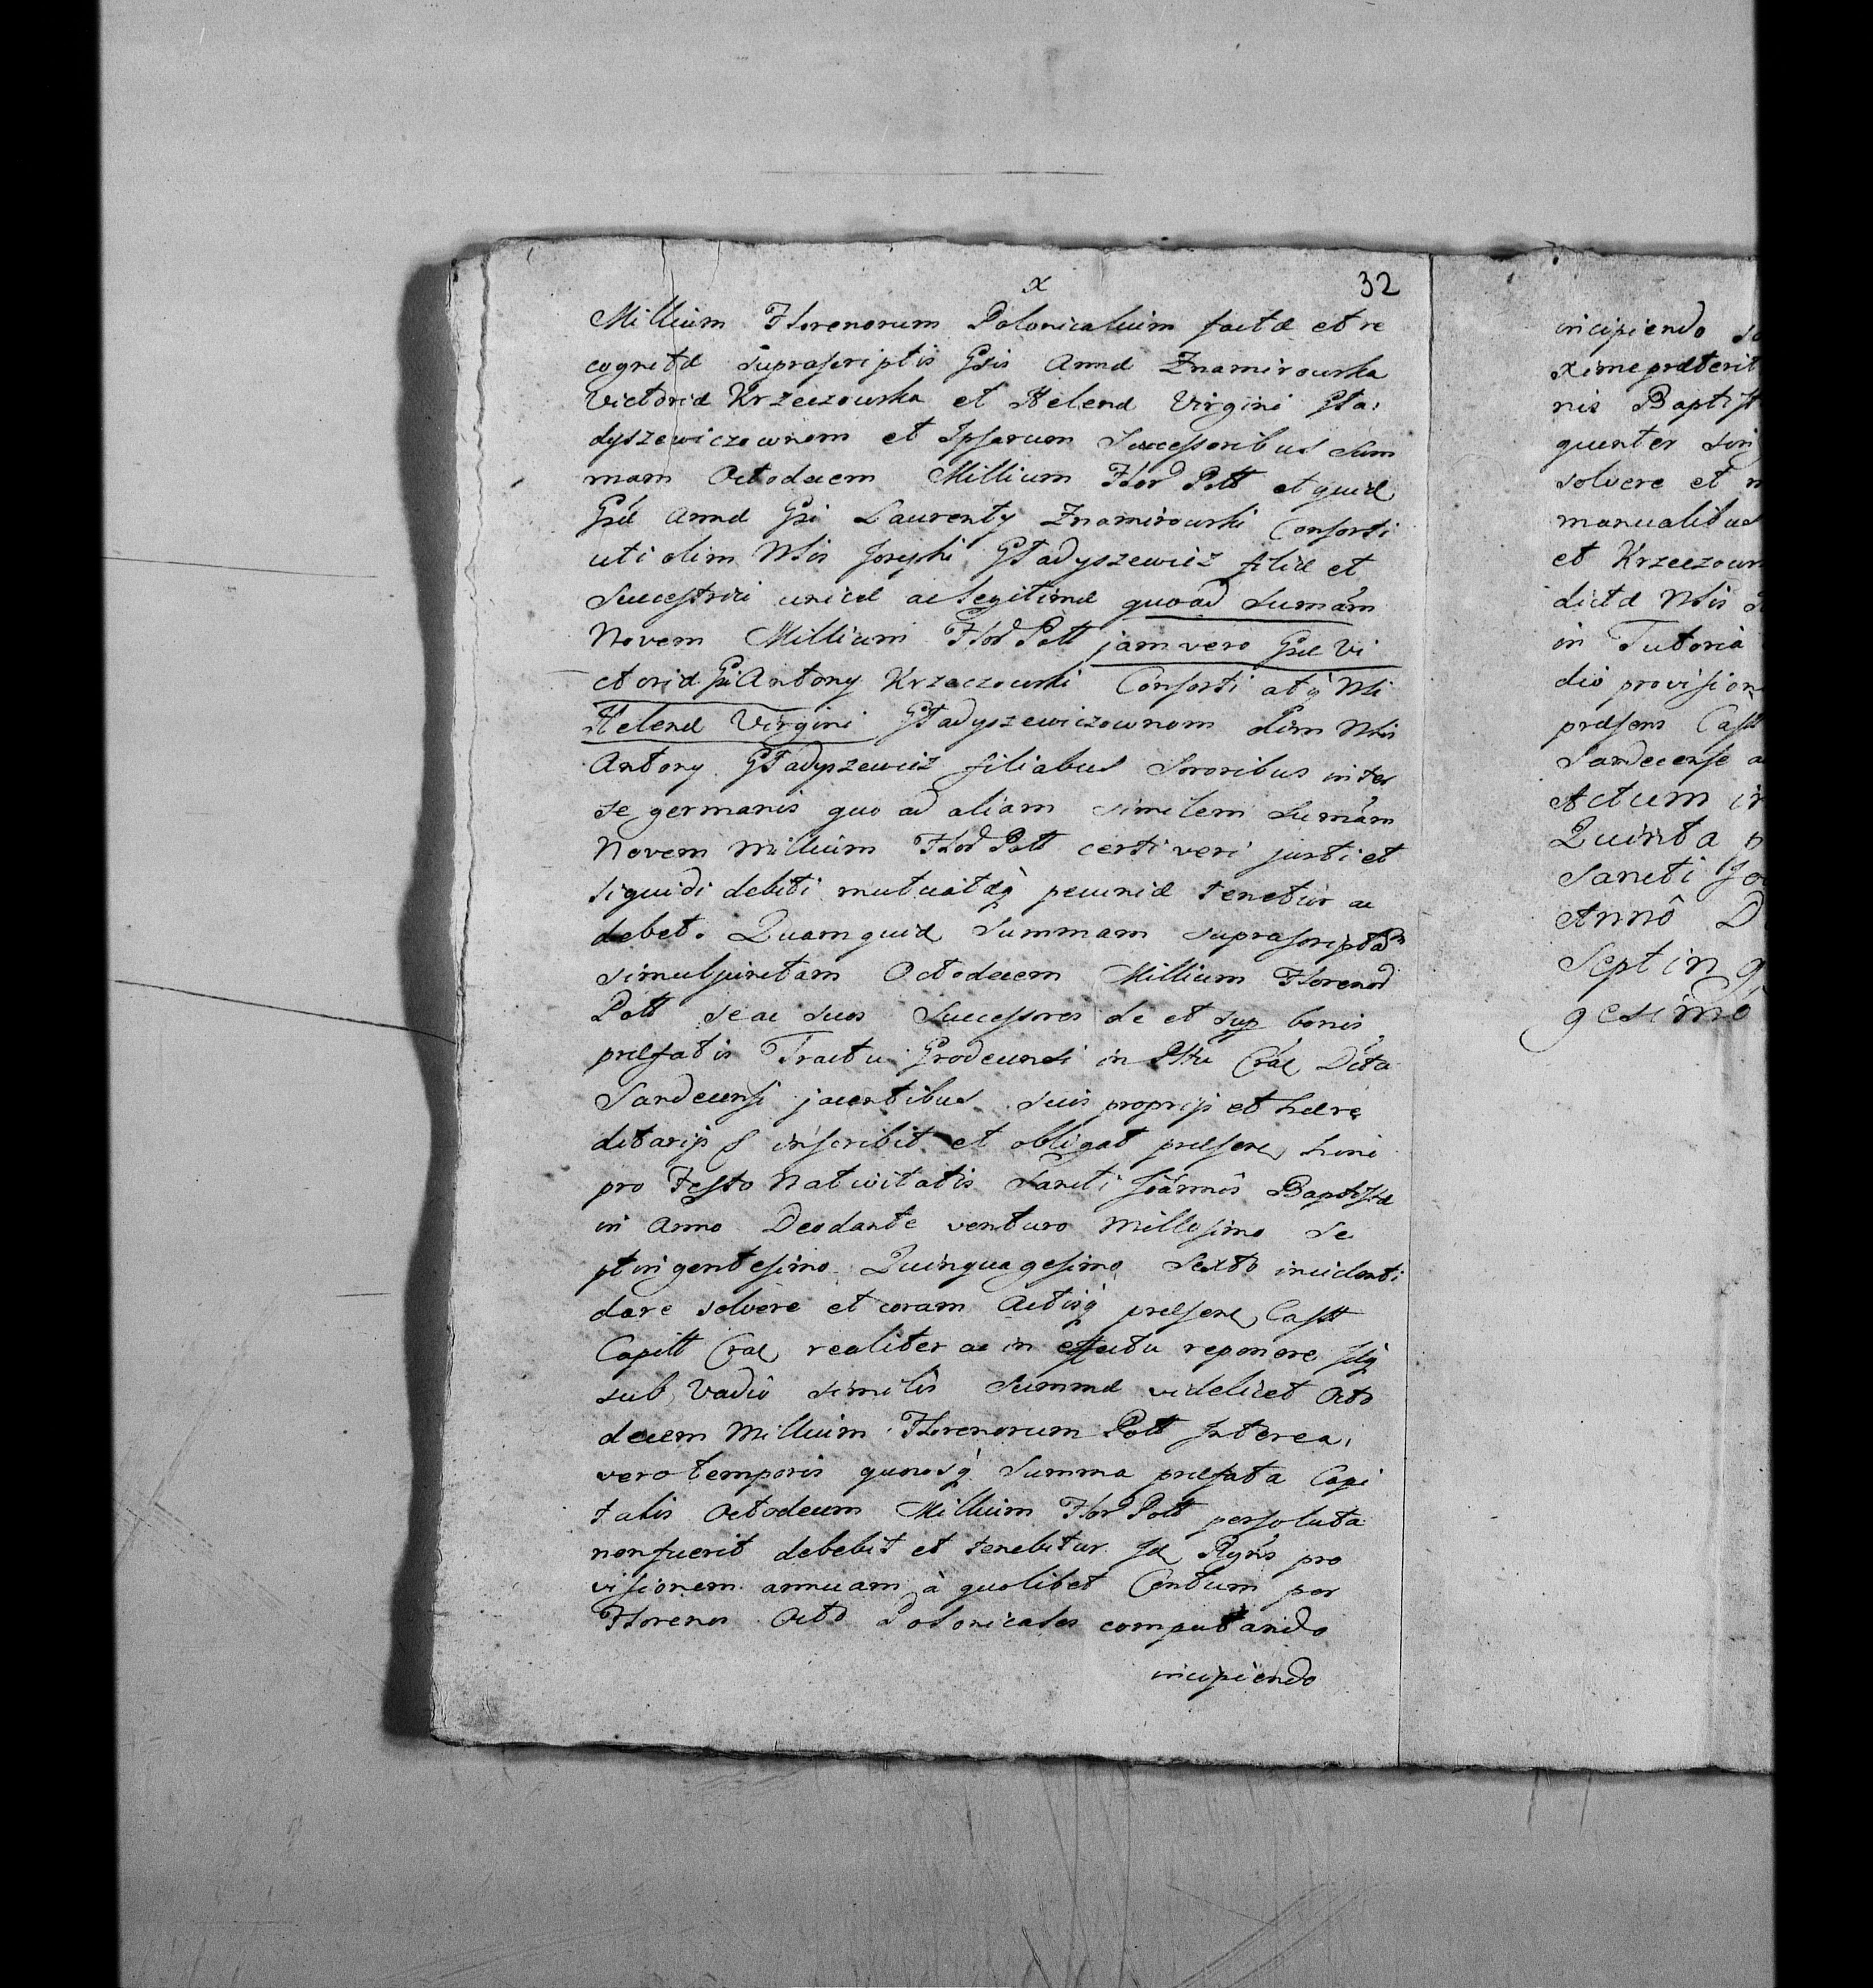 x 32
Millium Florenorum Polonicalium factæ et re
cognitæ suprascriptis Gsis Annæ Znamirowska
Victoriæ Krzeczowska et Helenæ Virgini Gła,
dyszewiczownom et Ipsarum Successoribus Sum
mam Octodecem Millium Flor Poll et quid
Gsæ Annæ Gsi Laurenty Znamirowski Consorti
uti olim Nbis Josephi Gładyszewicz filiæ et
Successtrici unicæ ac legitimæ quoad Sumam
Novem Millium Flor Poll jam vero Gsæ Vi
ctoriæ Gsi Antony Krzeczowski Consorti atq Nbi
Helenæ Virgini Gładyszewiczownom olim Nbis
Antony Gładyszewicz filiabus Sororibus inter
se germanis quo ad aliam similem Sumam
Novem Millium Flor Poll certi veri justi et
liquidi debiti mutuatæq pecuniæ tenetur ac
debet. Quamquid Summam suprascriptam
simuljunctam Octodecem Millium Florenor
Poll se ac suos Successores de et sup bonis
præfatis Tractu Grodecensi in Pttu Crac Dicta
Sandecensi jacentibus suis proprijs et hære
ditarijs inscribit et obligat præsen hinc
pro Festo Nativitatis Sancti Joannis Baptistæ
in Anno Deodante venturo Millesimo Se
ptingentesimo Quinquagesimo Sexto incidenti
dare solvere et coram Actisq præsen Castt
Capitt Crac realiter ac in effectu reponere Idq
sub Vadio similis Summæ videlicet Octo
decem Millium Florenorum Poll Interea,
vero temporis quousq Summa præfata Capi
talis Octodecem Millium Flor Poll persoluta
non fuerit debebit et tenebitur Id Rgns pro
visionem annuam à quolibet Centum per
Florenos Octo Polonicales computando
incipiendo
incipiendo
xime præterit
nis Baptist
quenter sin
solvere et
manualibus
et Krzeczow
dictæ Nbis
in Tutoria
dio provision
præsens Castt
Sandecense
Actum in
Quinta
Sancti Jo
Annô D
Septing
gesimo